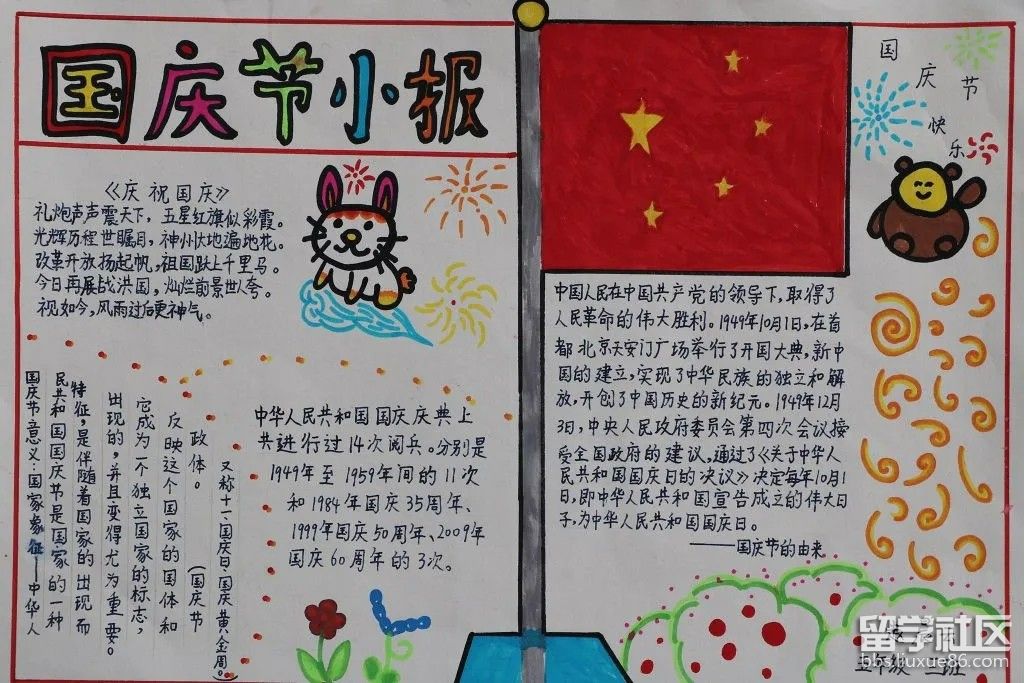 国庆节小报
《庆祝国庆》
礼炮声声震天下，五星红旗似彩霞。
光辉历程世瞩目，神州大地遍地花。
改革开放扬起帆，祖国跃上千里马。
今日再展战洪国，灿烂前景世人夸。
视如今，风雨过后更神气。
国庆节意义：国家象征——中华人
民共和国国庆节是国家的一种
特征，是伴随着国家的出现而
出现的，并且变得尤为重要。
它成为一个独立国家的标志，
反映这个国家的国体和
政体。（国庆节
又称十一、国庆日、国庆黄金周。）
中华人民共和国国庆庆典上
共进行过14次阅兵。分别是
1949年至1959年间的11次
和1984年国庆35周年、
1999年国庆50周年、2009年
国庆60周年的3次。
国庆节快乐
中国人民在中国共产党的领导下，取得了
人民革命的伟大胜利。1949年10月1日，在首
都北京天安门广场举行了开国大典，新中
国的建立，实现了中华民族的独立和解
放，开创了中国历史的新纪元。1949年12月
3日，中央人民政府委员会第四次会议接
受全国政府的建议，通过了《关于中华人
民共和国国庆日的决议》决定每年10月1
日，即中华人民共和国宣告成立的伟大日
子，为中华人民共和国国庆日。
——国庆节的由来
五年级
班
留学社区
bbs.liuxue86.com